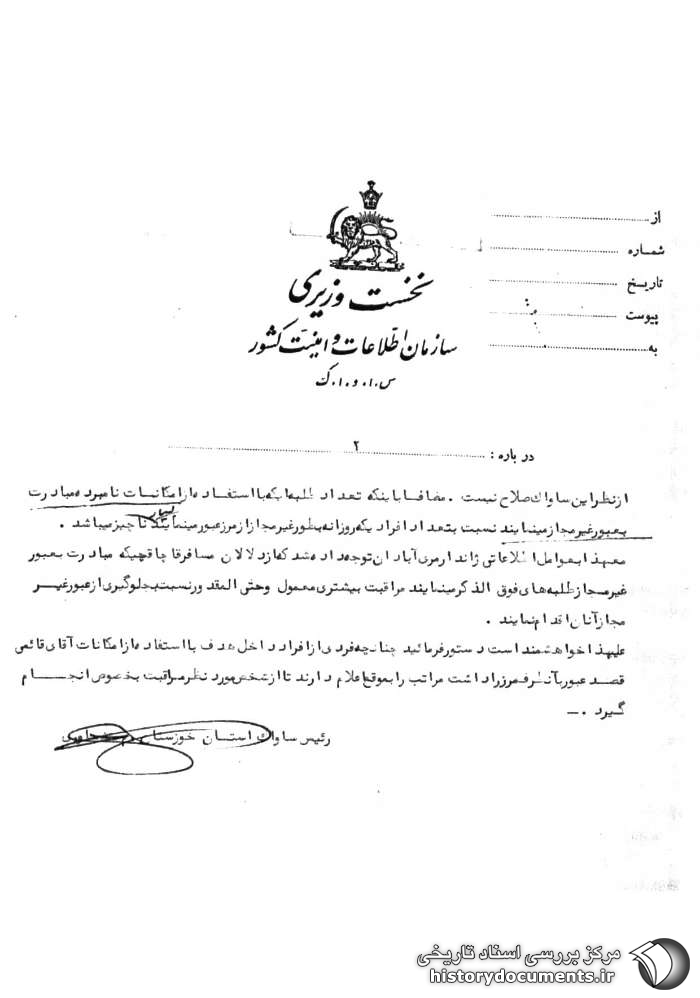 از
شماره
تاریخ
پیوست
به
نخست وزیری
سازمان اطلاعات و امنیت کشور
س.ا.و.ا.ک
در باره : ۲
از نظر این ساواک صلاح نیست . مضافا باینکه تعداد طلبه ایکه با استفاده از امکانات نامبرده مبادرت
بعبور غیر مجاز مینمایند نسبت بتعداد افرادیکه روزانه بطور غیر مجاز از مرز عبور مینمایند بسیار ناچیز میباشد .
معهذا بعوامل اطلاعاتی ژاندارمری آبادان توجه داده شد که از دلالان مسافر قاچاقچیکه مبادرت بعبور
غیر مجاز طلبه های فوق الذکر مینمایند مراقبت بیشتری معمول وحتی المقدور نسبت بجلوگیری از عبور غیر
مجاز آنان اقدام نمایند .
علیهذا خواهشمند است دستور فرمائید چنانچه فردی از افراد داخل هدف با استفاده از امکانات آقای قائمی
قصد عبور بآنطرف مرز را داشت مراتب را بموقع اعلام دارند تا از شخص مورد نظر مراقبت بخصوص انجام
گیرد . ــ
رئیس ساواک استان خوزستان
مرکز بررسی اسناد تاریخی
historydocuments.ir